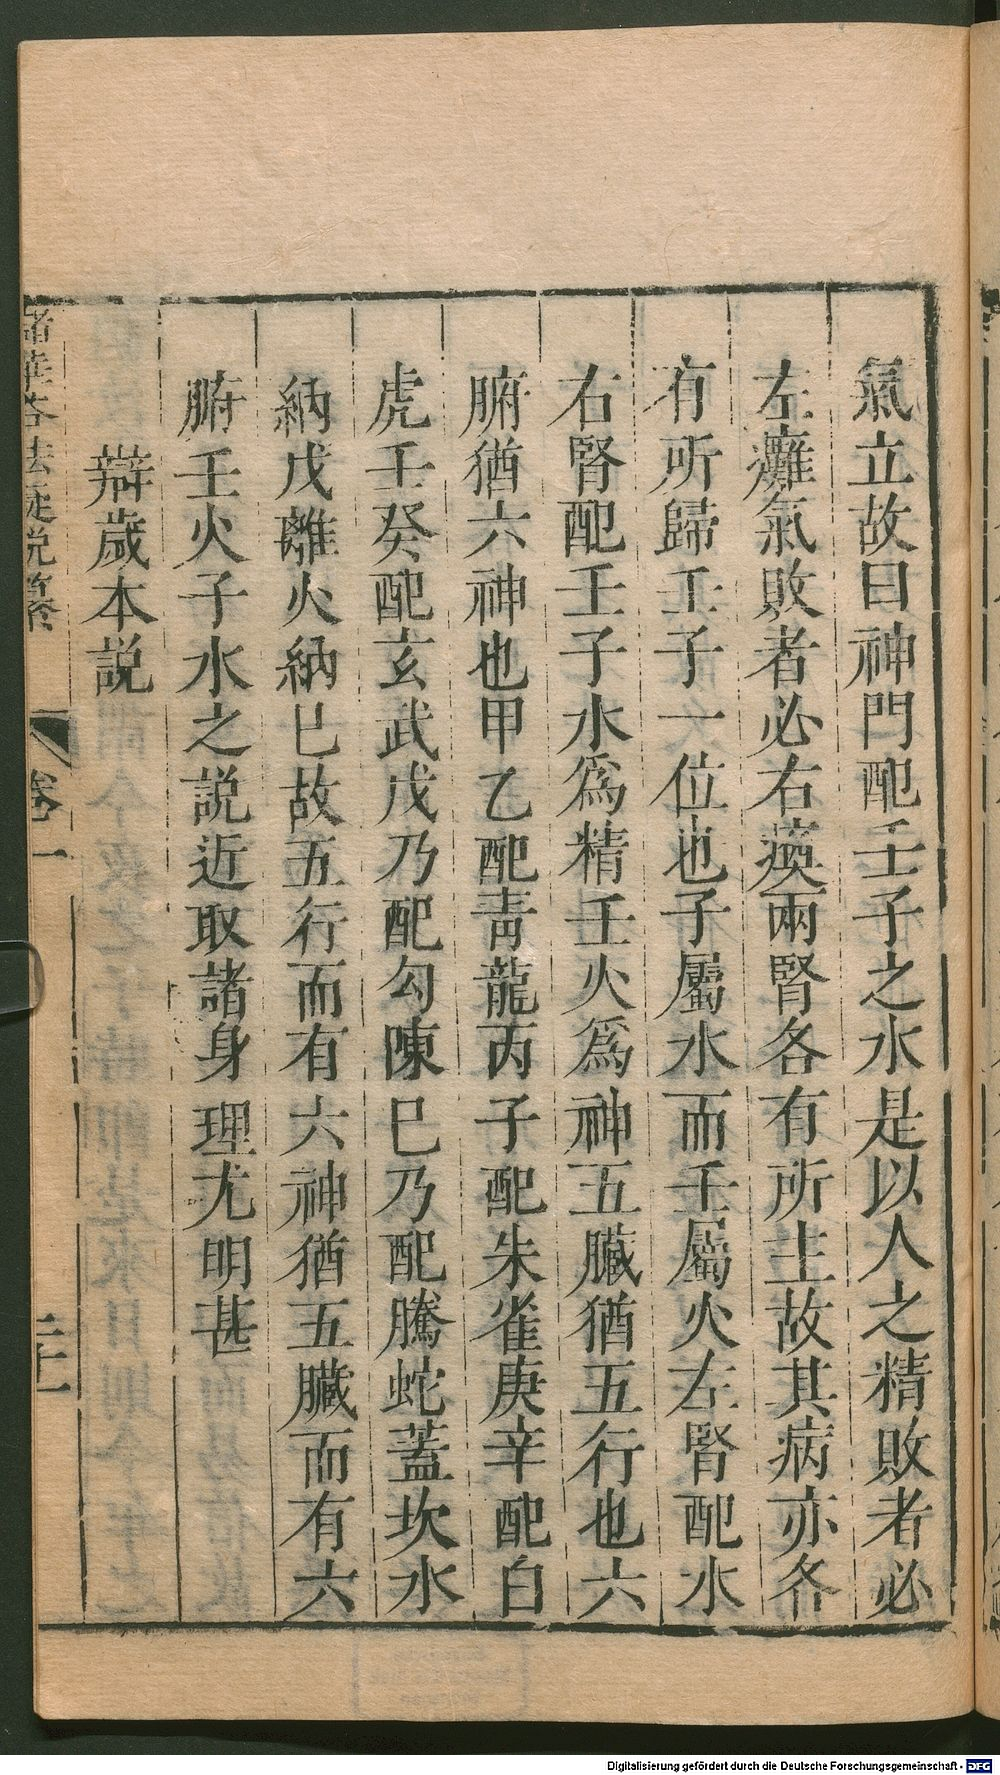 氣立故曰神門配壬子之水是以人之精敗者必
左癱氣敗者必右瘓兩腎各有所主故其病亦各
有所歸壬子一位也子屬水而壬屬火左腎配水
右腎配壬子水爲精壬火爲神五臟猶五行也六
腑猶六神也甲乙配靑龍丙子配朱雀庚辛配白
虎壬癸配玄武戊乃配勾陳巳乃配騰蛇蓋坎水
納戊離火納巳故五行而有六神猶五臟而有六
腑壬火子水之說近取諸身理尤明甚
辯歲本説
卷一
二十一
Digitalisierung gefördert durch die Deutsche Forschungsgemeinschaft - DFG